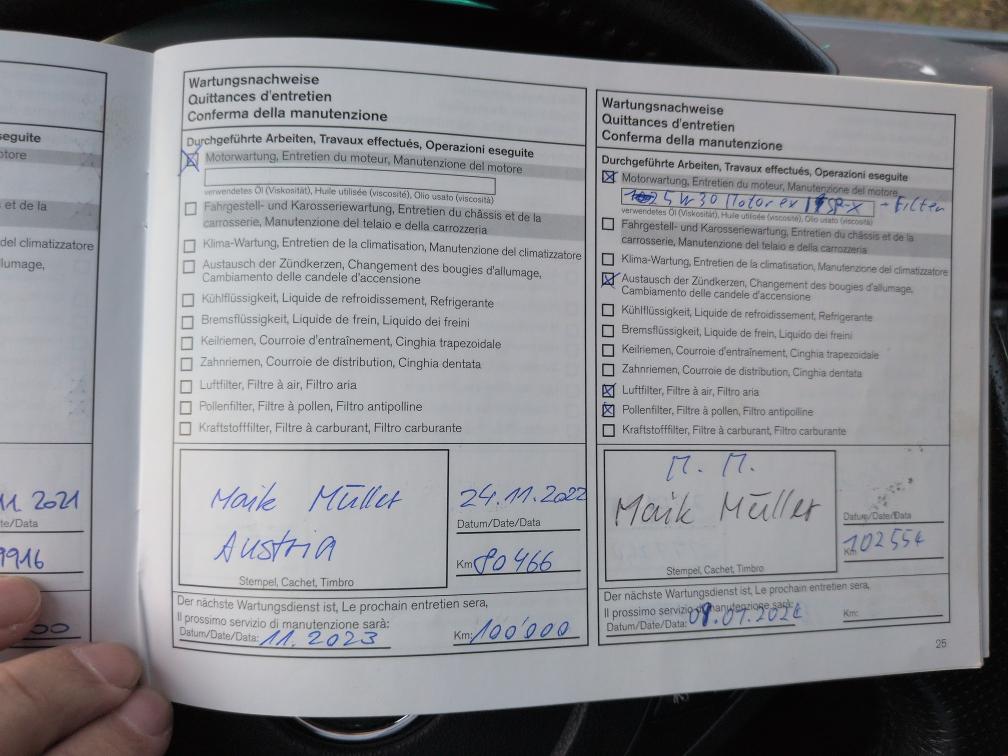 eseguite
otore
s et de la
del climatizzatore
llumage,
11. 2021
te/Data
9916
00
Wartungsnachweise
Quittances d'entretien
Conferma della manutenzione
Durchgeführte Arbeiten, Travaux effectués, Operazioni eseguite
Motorwartung, Entretien du moteur, Manutenzione del motore
verwendetes Öl (Viskosität), Huile utilisée (viscosité), Olio usato (viscosità)
Fahrgestell- und Karosseriewartung, Entretien du châssis et de la
carrosserie, Manutenzione del telaio e della carrozzeria
Klima-Wartung, Entretien de la climatisation, Manutenzione del climatizzatore
Austausch der Zündkerzen, Changement des bougies d'allumage,
Cambiamento delle candele d'accensione
Kühlflüssigkeit, Liquide de refroidissement, Refrigerante
Bremsflüssigkeit, Liquide de frein, Liquido dei freini
Keilriemen, Courroie d'entraînement, Cinghia trapezoidale
Zahnriemen, Courroie de distribution, Cinghia dentata
Luftfilter, Filtre à air, Filtro aria
Pollenfilter, Filtre à pollen, Filtro antipolline
Kraftstofffilter, Filtre à carburant, Filtro carburante
Maik Müller
Austria
Stempel, Cachet, Timbro
24.11.2022
Datum/Date/Data
Km 80466
Der nächste Wartungsdienst ist, Le prochain entretien sera,
Il prossimo servizio di manutenzione sarà:
Datum/Date/Data: 11.2023 Km: 100'000
Wartungsnachweise
Quittances d'entretien
Conferma della manutenzione
Durchgeführte Arbeiten, Travaux effectués, Operazioni eseguite
Motorwartung, Entretien du moteur, Manutenzione del motore
5W30 Motorex SP-X + Filter
verwendetes Öl (Viskosität), Huile utilisée (viscosité), Olio usato (viscosità)
Fahrgestell- und Karosseriewartung, Entretien du châssis et de la
carrosserie, Manutenzione del telaio e della carrozzeria
Klima-Wartung, Entretien de la climatisation, Manutenzione del climatizzatore
Austausch der Zündkerzen, Changement des bougies d'allumage,
Cambiamento delle candele d'accensione
Kühlflüssigkeit, Liquide de refroidissement, Refrigerante
Bremsflüssigkeit, Liquide de frein, Liquido dei freini
Keilriemen, Courroie d'entraînement, Cinghia trapezoidale
Zahnriemen, Courroie de distribution, Cinghia dentata
Luftfilter, Filtre à air, Filtro aria
Pollenfilter, Filtre à pollen, Filtro antipolline
Kraftstofffilter, Filtre à carburant, Filtro carburante
M. M.
Maik Müller
Stempel, Cachet, Timbro
Datum/Date/Data
Km 102554
Der nächste Wartungsdienst ist, Le prochain entretien sera,
Il prossimo servizio di manutenzione sarà:
Datum/Date/Data: Km:
25